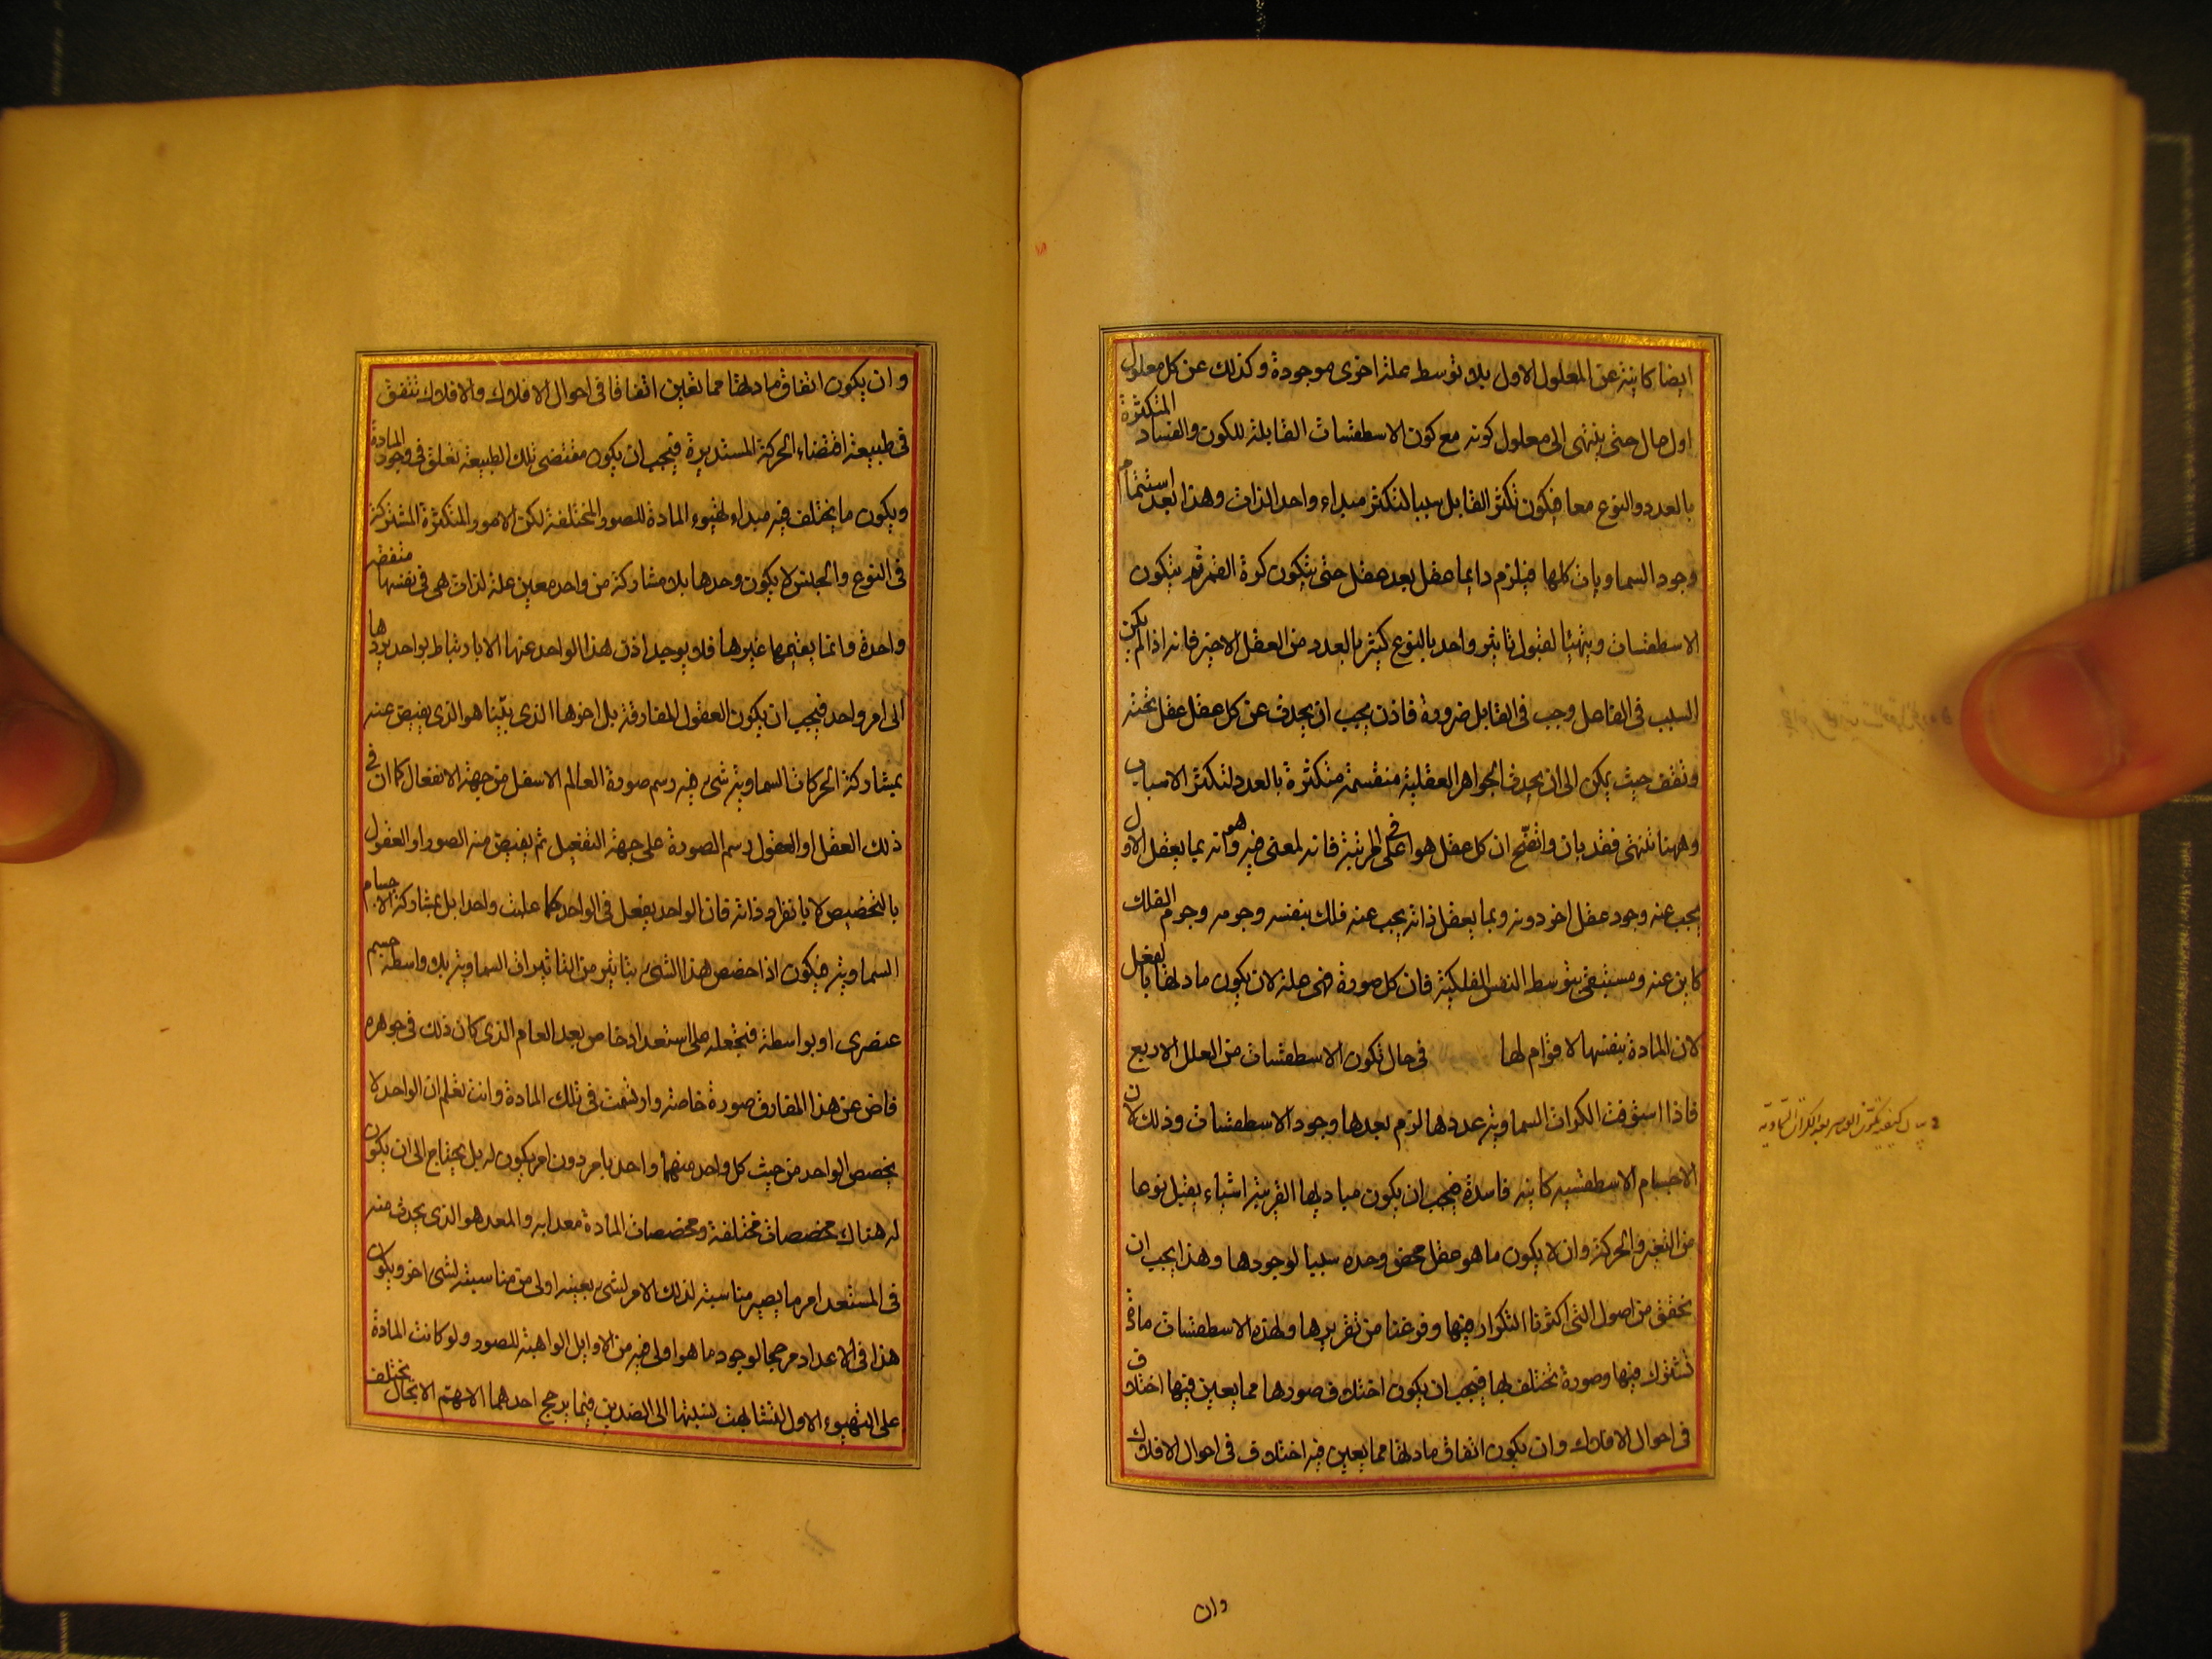 ايضا كاينة عن المعلول الاول بلا توسط علة اخرى موجودة وكذلك عن كل معلول
اول حال حتى ينتهى الى معلول كونه مع كون الاسطقسات القابلة للكون والفساد المتكثرة
بالعدد والنوع معا فيكون تكثر القابل سببا لتكثر مبداء واحد الذات وهذا بعد استتمام
وجود السماويات كلها فيلزم دايما عقل بعد عقل حتى يتكون كرة القمر ثم يتكون
الاسطقسات ويتهيئا لقبول تاثير واحد بالنوع كثير بالعدد من العقل الاخير فانه اذا لم يكن
السبب فى الفاعل وجب فى القابل ضرورة فاذن يجب ان يحدث عن كل عقل عقل تحته
وتقف حيث يمكن الى ان يحدث الجواهر العقلية منقسمة متكثرة بالعدد لتكثر الاسباب
وههنا تنتهى فقد بان واتضح ان كل عقل هو اعلى فى المرتبة فانه لمعنى فيه وهو انه بما يعقل الاول
يجب عنه وجود عقل اخر دونه وبما يعقل ذاته يجب عنه فلك بنفسه وجرمه وجرم الفلك
كاين عنه ومستبقى بتوسط النفس الفلكية فان كل صورة فهى علة لان يكون مادتها بالفعل
لان المادة بنفسها لا قوام لها فى حال تكون الاسطقسات من العلل الاربع
فاذا استوفت الكرات السماوية عددها لزم بعدها وجود الاسطقسات وذلك لان
الاجسام الاسطقسية كاينة فاسدة فيجب ان يكون مباديها القريبة اشياء يقبل نوعا
من التغير والحركة وان لا يكون ما هو عقل محض وحده سببا لوجودها وهذا يجب ان
يتحقق من اصول التى اكثرنا التكرار فيها وفرغنا من تقريرها ولهذه الاسطقسات مادة
تشترك فيها وصورة تختلف بها فيجب ان يكون اختلاف صورها مما يعين فيها اختلاف
فى احوال الافلاك وان يكون اتفاق مادتها مما يعين فيه اختلاف فى احوال الافلاك
وان
وان يكون اتفاق مادتها مما تعين اتفاقا فى احوال الافلاك والافلاك تتفق
فى طبيعة اقتضاء الحركة المستديرة فيجب ان يكون مقتضى تلك الطبيعة تعلق فى وجود المادة
ويكون ما يختلف فيه مبداء تهيوء المادة للصور المختلفة لكن الامور المتكثرة المشتركة
فى النوع والجنس لا يكون وحدها بلا مشاركة من واحد معين علة لذات هى فى نفسها متفقة
واحدة وانما يقيمها غيرها فلا يوجد اذن هذا الواحد عنها الا بارتباط بواحد يردها
الى امر واحد فيجب ان يكون العقول المفارقة بل اخرها الذى يلينا هو الذى يفيض عنه
بمشاركة الحركات السماوية شىء فيه رسم صورة العالم الاسفل من جهة الانفعال كما ان فى
ذلك العقل او العقول رسم الصورة على جهة التفعيل ثم يفيض منه الصور او العقول
بالتخصيص لا بانفراد ذاته فان الواحد يفعل فى الواحد كما علمت واحدا بل بمشاركة الاجسام
السماوية فيكون اذا خصص هذا الشىء بتاثير من التاثيرات السماوية بلا واسطة جسم
عنصرى او بواسطة فتجعله على استعداد خاص بعد العام الذى كان ذلك فى جوهره
فاض عن هذا المفارق صورة خاصة وارتسمت فى تلك المادة وانت تعلم ان الواحد لا
يخصص الواحد من حيث كل واحد منهما واحد بامر دون امر يكون له بل يحتاج الى ان يكون
له هناك مخصصات مختلفة ومخصصات المادة معداته والمعد هو الذى يحدث منه
فى المستعد امر ما يصير مناسبته لذلك الامر لشىء بعينه اولى من مناسبته لشىء اخر ويكون
هذا فى الاعداد مرجحا لوجود ما هو اولى فيه من الاوايل الواهبة للصور ولو كانت المادة
على التهيوء الاول لتشابهت نسبتها الى الضدين فيما يرجح احدهما اللهم الا بحال يختلف